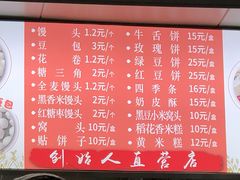 馒头 1.2元/个
豆包 3元/个
花卷 1.2元/个
糖三角 2元/个
全麦馒头 1.2元/个
黑香米馒头 2元/个
红糖枣馒头 2元/个
窝头 10元/盒
贴饼子 10元/盒
牛舌饼 15元/盒
玫瑰饼 15元/盒
绿豆饼 15元/盒
红豆饼 15元/盒
四季条 16元/盒
奶皮酥 15元/盒
黑豆小米窝头 10元/盒
稻花香米糕 10元/盒
黄米糕 12元/盒
创始人直营店
包